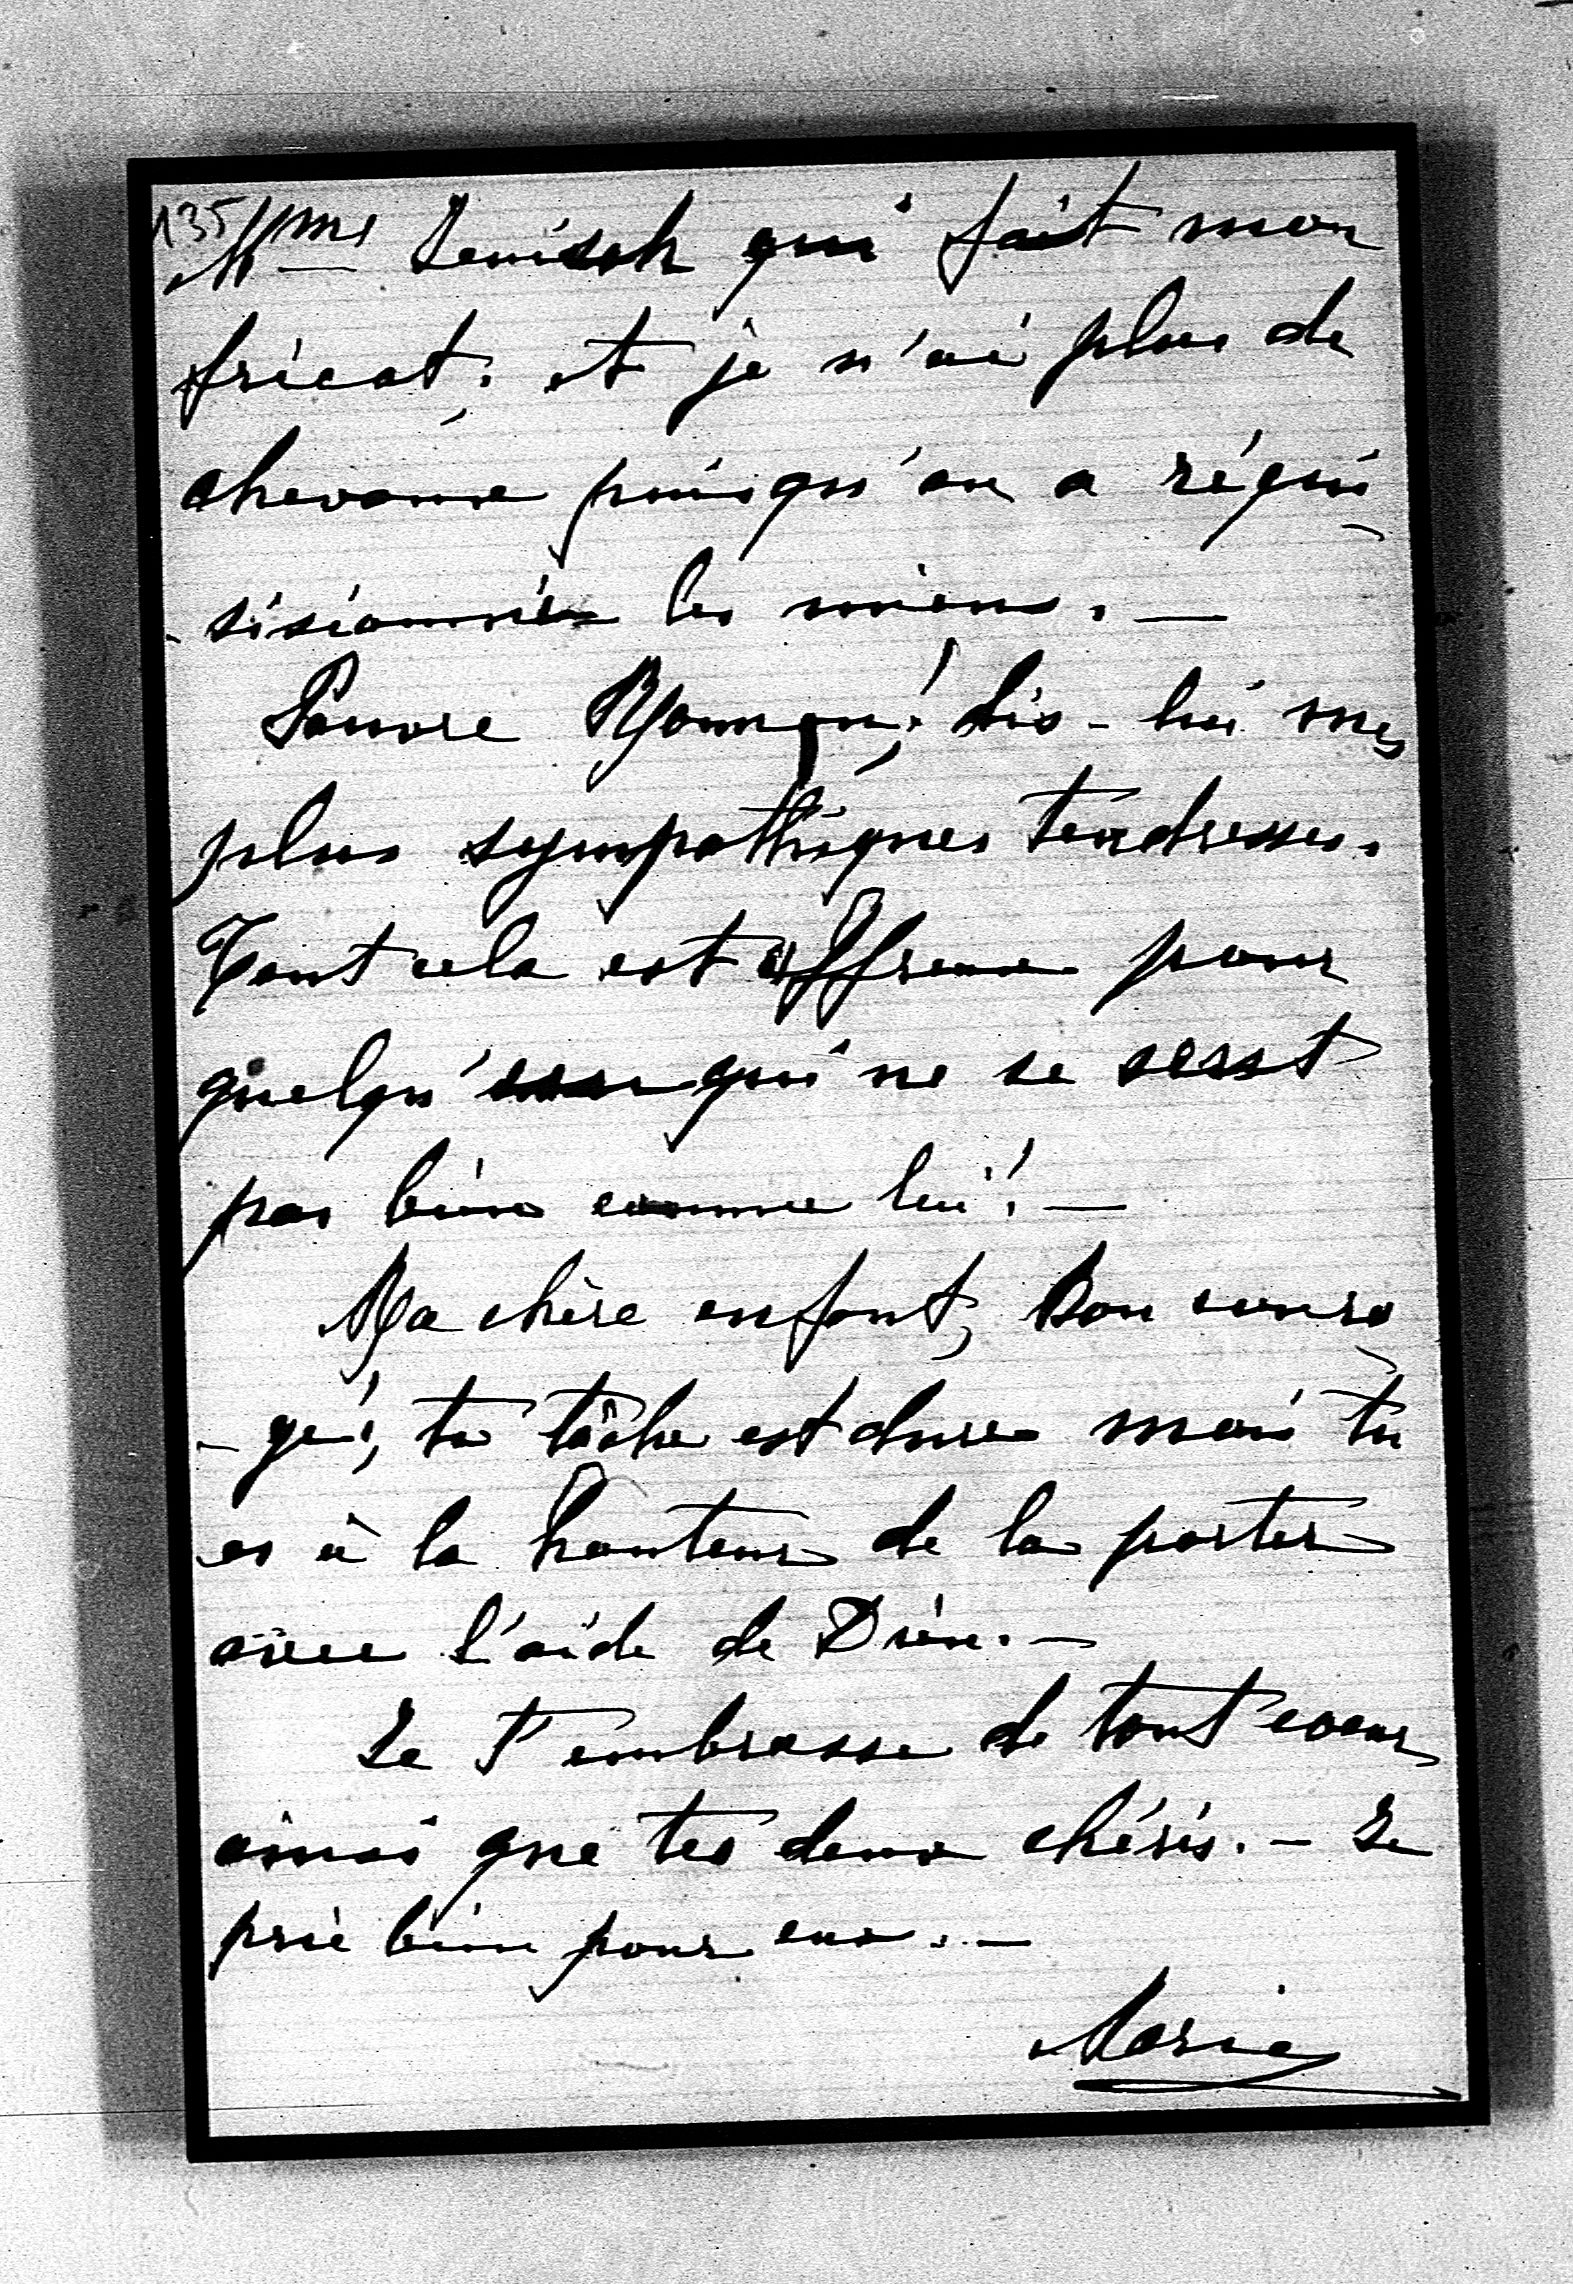 135
Mme Jenisch qui fait mon
fricot, et je n'ai plus de
chevaux puisqu'on a réqui
- sisionné les miens. —
Pauvre Maman! dis-lui mes
plus sympathiques tendresses.
Tout cela est affreux pour
quelqu'un qui ne se sent
pas bien comme lui! —
Ma chère enfant, bon coura
- ge!, ta tâche est dure mais tu
es à la hauteur de la porter
avec l'aide de Dieu. —
Je t'embrasse de tout coeur
ainsi que tes deux chéris. — Je
prie bien pour eux. —
Marie